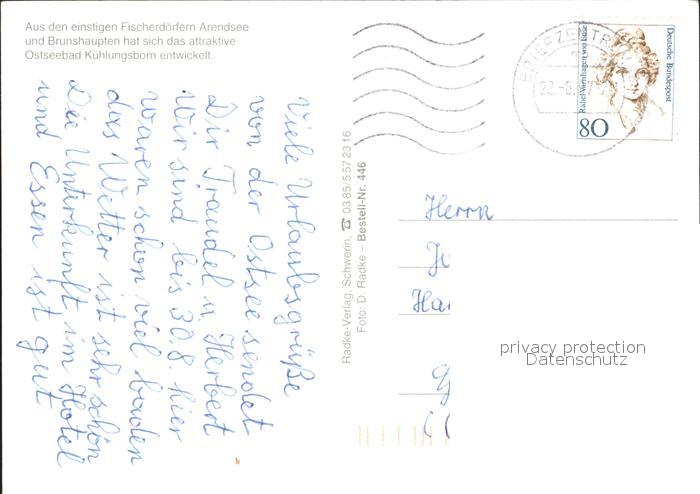 Aus den einstigen Fischerdörfern Arendsee
und Brunshaupten hat sich das attraktive
Ostseebad Kühlungsborn entwickelt.
Viele Urlaubsgrüße
von der Ostsee sendet
Dir Traudel u. Herbert
Wir sind bis 30.8. hier
waren schon viel baden
das Wetter ist sehr schön
Die Unterkunft im Hotel
und Essen ist gut
Radke-Verlag, Schwerin, ☎ 03 85/5 57 23 16
Foto: D. Radke – Bestell-Nr. 446
BRIEFZENTR
22.-8.
Deutsche Bundespost
Rahel Varnhagen von Ense
80
Herrn
privacy protection
Datenschutz